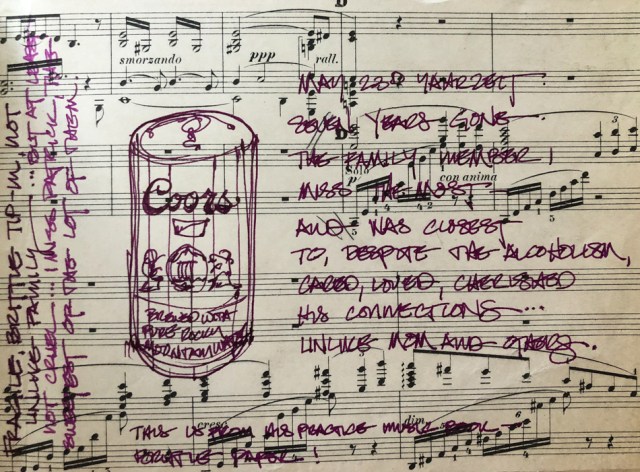 smorzando
ppp
rall.
MAY 23RD YAHRZEIT
SEVEN YEARS GONE
THE FAMILY MEMBER I
MISS THE MOST
AND WAS CLOSEST
TO, DESPITE THE ALCOHOLISM,
CARED, LOVED, CHERISHED
HIS CONNECTIONS...
UNLIKE MOM AND OTHERS.
Solo
p
con anima
Coors
BREWED WITH
PURE ROCKY
MOUNTAIN WATER
cresc
dim
6
THIS IS FROM HIS PRACTICE MUSIC BOOK —
BRITTLE PAPER!
FRAGILE, BRITTLE TIP-IN, NOT
UNLIKE FAMILY ... BUT AT LEAST
NOT CRUEL... I MISS PATRICK, THE
SWEETEST OF THE LOT OF THEM.